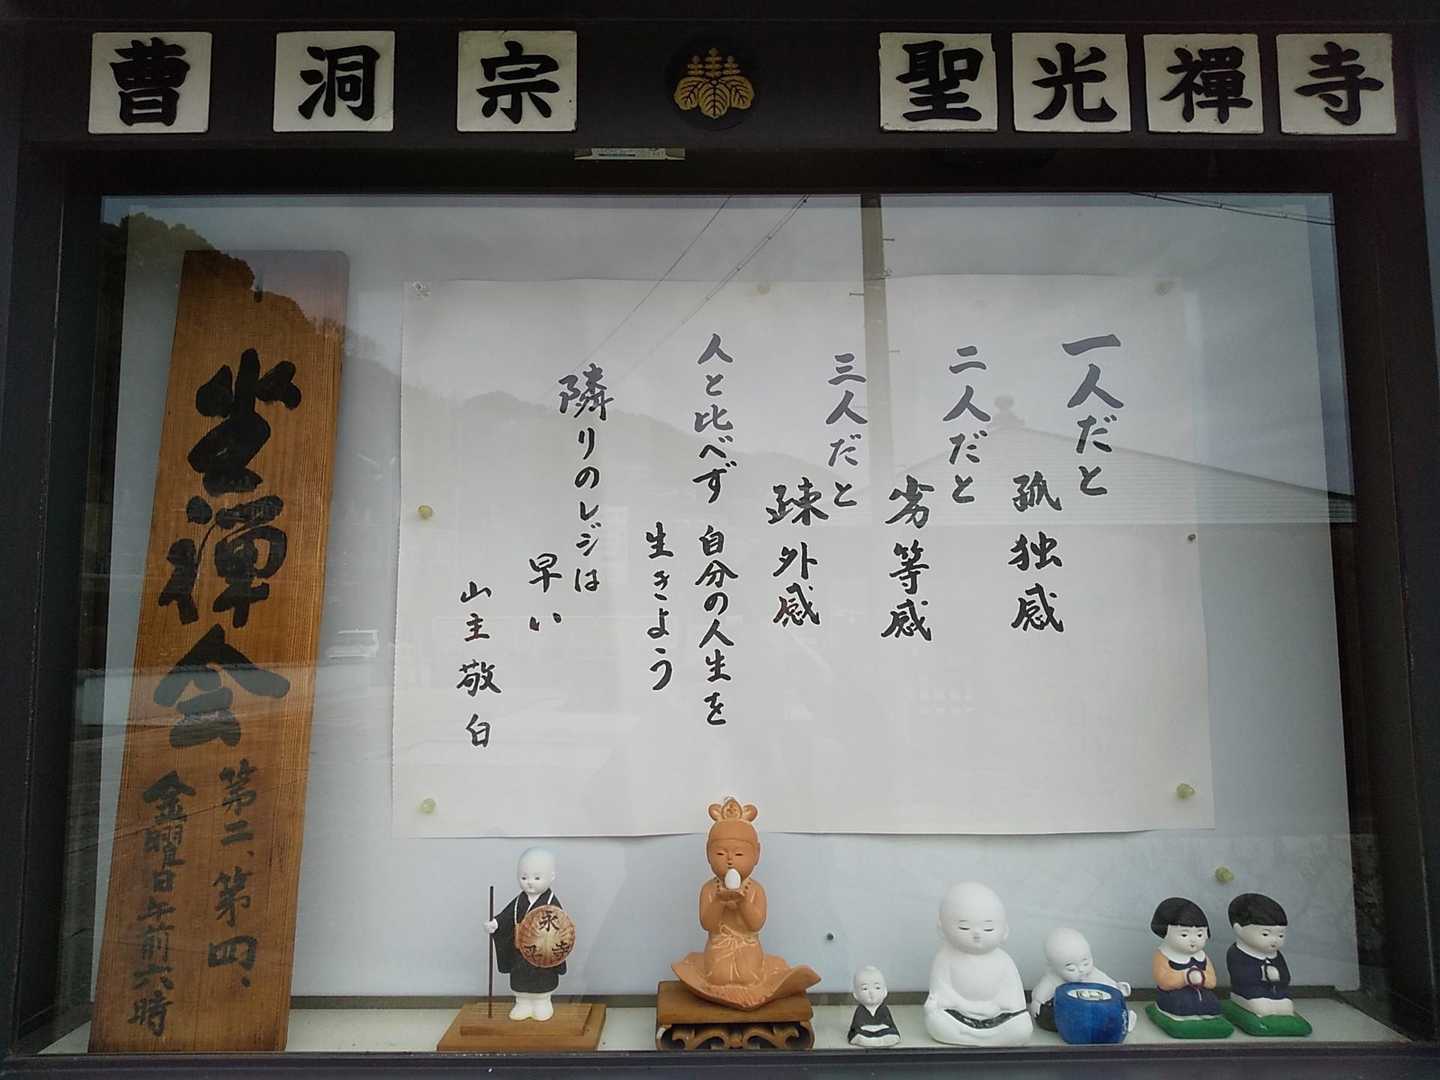 曹洞宗
聖光禪寺
一人だと
孤独感
二人だと
劣等感
三人だと
疎外感
人と比べず 自分の人生を
生きよう
隣りのレジは
早い
山主 敬白
坐禅会
第二、第四、
金曜日午前六時
永平寺